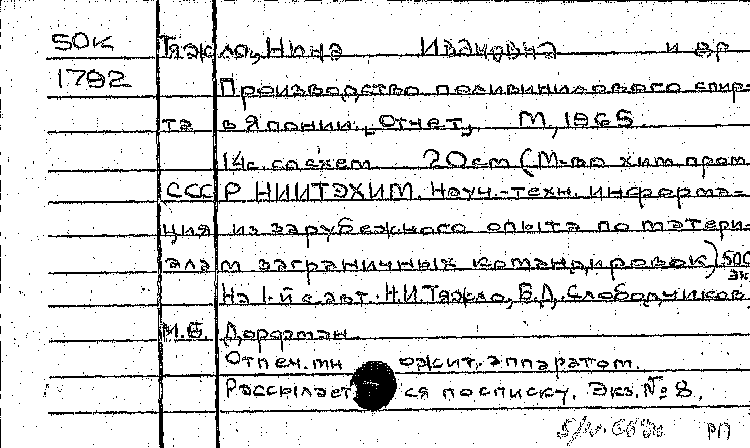 50к Тяжло, Нина Ивановна и др
1792 Производство поливинилового спир-
та в Японии. „Отчет„. М, 1965.
14с. со схем 20см (М-во хим пром
СССР НИИТЭХИМ. Науч.-техн. информа-
ция из зарубежного опыта по матери-
алам заграничных командировок) 500
экз
На 1-й с авт. Н.И. Тяжло, В.Д. Слободчиков
М.Б. Дорфман.
Отпеч. мн ожит. аппаратом.
Рассылает ся по списку. Экз. № 8.
РП